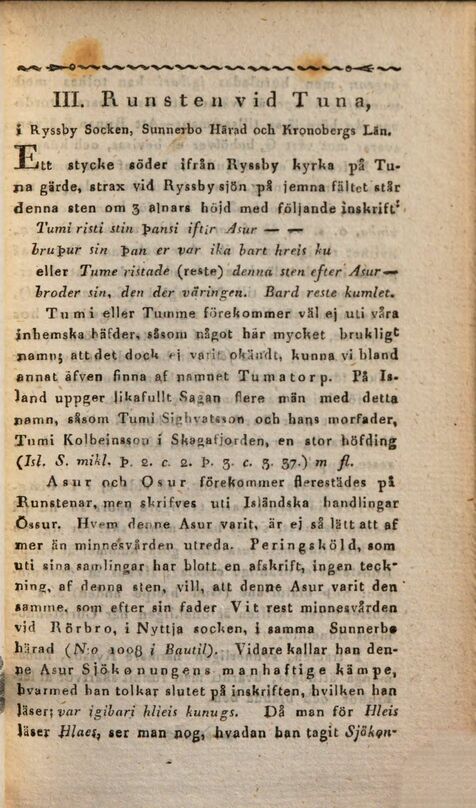 III. Runsten vid Tuna,
i Ryssby Socken, Sunnerbo Härad och Kronobergs Län.
Ett stycke söder ifrån Ryssby kyrka på Tu-
na gärde, strax vid Ryssbysjön på jemna fältet står
denna sten om 3 alnars höjd med följande inskrift:
Tumi risti stin þansi iftir Asur — —
bruþur sin þan er var ika bart hreis ku
eller Tume ristade (reste) denna sten efter Asur—
broder sin, den der väringen. Bard reste kumlet.
Tumi eller Tumme förekommer väl ej uti våra
inhemska häfder, såsom något här mycket brukligt
namn; att det dock ej varit okändt, kunna vi bland
annat äfven finna af namnet Tumatorp. På Is-
land uppger likafullt Sagan flere män med detta
namn, såsom Tumi Sighvatsson och hans morfader,
Tumi Kolbeinsson i Skagafjorden, en stor höfding
(Isl. S. mikl. þ. 2. c. 2. þ. 3. c. 3. 37.) m fl.
Asur och Osur förekommer flerestädes på
Runstenar, men skrifves uti Isländska handlingar
Össur. Hvem denne Asur varit, är ej så lätt att af
mer än minnesvården utreda. Peringsköld, som
uti sina samlingar har blott en afskrift, ingen teck-
ning, af denna sten, vill, att denne Asur varit den
samme, som efter sin fader Vit rest minnesvården
vid Rörbro, i Nyttja socken, i samma Sunnerbo
härad (N:o 1008 i Bautil). Vidare kallar han den-
ne Asur Sjökonungens manhaftige kämpe,
hvarmed han tolkar slutet på inskriften, hvilken han
läser; var igibari hlieis kunugs. Då man för Hleis
läser Hlaes, ser man nog, hvadan han tagit Sjökon-